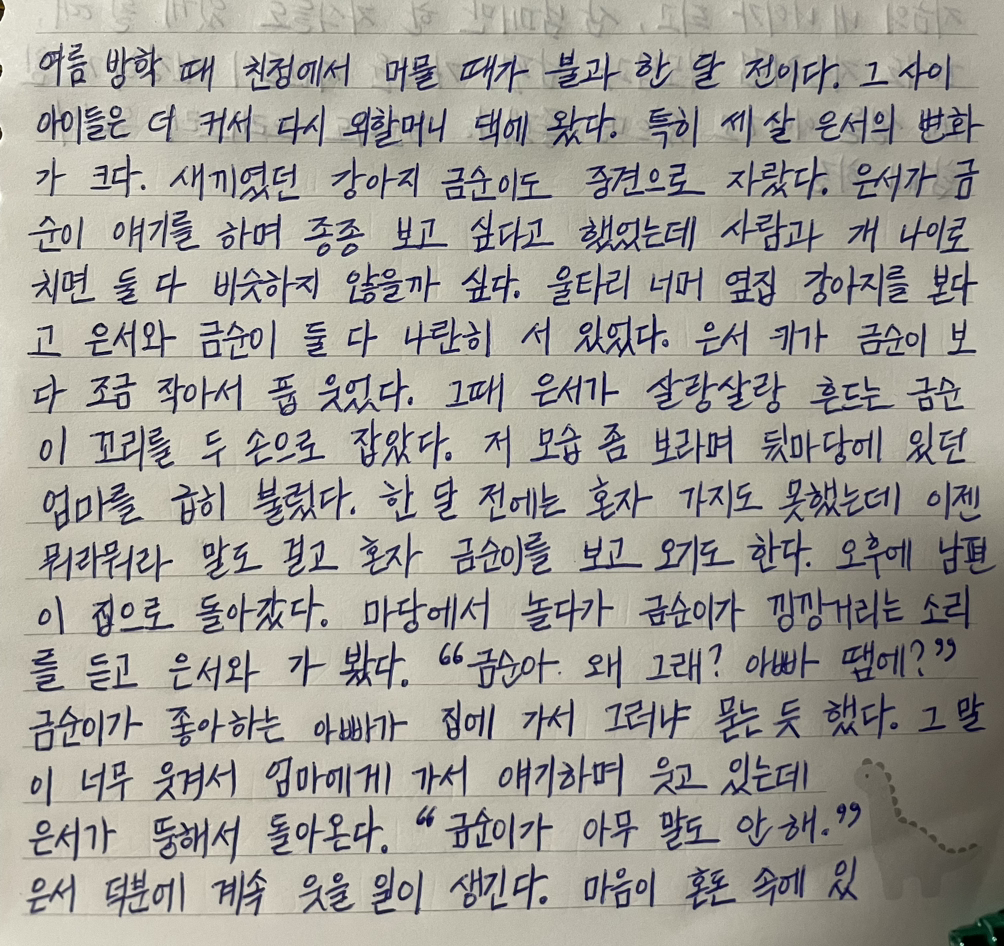 여름 방학 때 친정에서 머물 때가 불과 한 달 전이다. 그 사이
아이들은 더 커서 다시 외할머니 댁에 왔다. 특히 세 살 은서의 변화
가 크다. 새끼였던 강아지 금순이도 중견으로 자랐다. 은서가 금
순이 얘기를 하며 종종 보고 싶다고 했었는데 사람과 개 나이로
치면 둘 다 비슷하지 않을까 싶다. 울타리 너머 옆집 강아지를 본다
고 은서와 금순이 둘 다 나란히 서 있었다. 은서 키가 금순이 보
다 조금 작아서 풉 웃었다. 그때 은서가 살랑살랑 흔드는 금순
이 꼬리를 두 손으로 잡았다. 저 모습 좀 보라며 뒷마당에 있던
엄마를 급히 불렀다. 한 달 전에는 혼자 가지도 못했는데 이젠
뭐라뭐라 말도 걸고 혼자 금순이를 보고 오기도 한다. 오후에 남편
이 집으로 돌아갔다. 마당에서 놀다가 금순이가 낑깡거리는 소리
를 듣고 은서와 가 봤다. “금순아. 왜 그래? 아빠 땜에?”
금순이가 좋아하는 아빠가 집에 가서 그러냐 묻는 듯 했다. 그 말
이 너무 웃겨서 엄마에게 가서 얘기하며 웃고 있는데
은서가 뚱해서 돌아온다. “금순이가 아무 말도 안 해.”
은서 덕분에 계속 웃을 일이 생긴다. 마음이 혼돈 속에 있